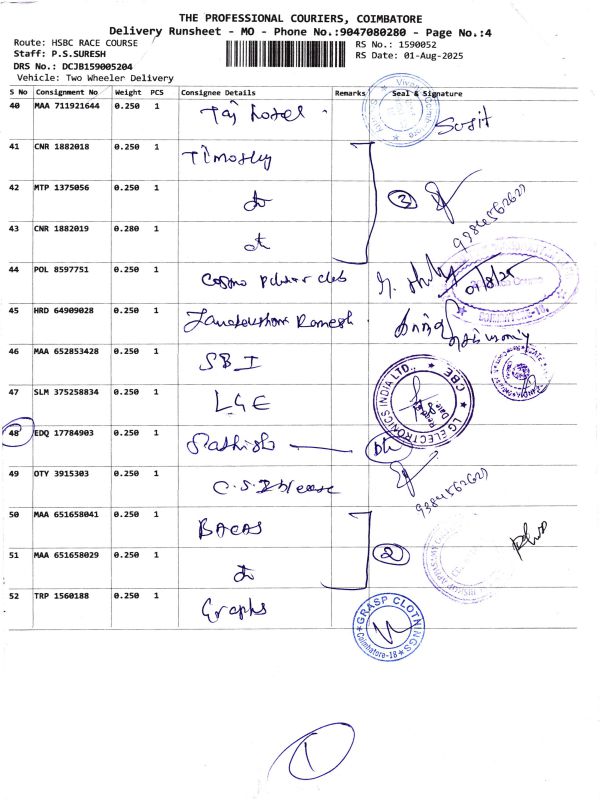 THE PROFESSIONAL COURIERS, COIMBATORE
Delivery Runsheet - MO - Phone No.:9047080280 - Page No.:4
Route: HSBC RACE COURSE
Staff: P.S.SURESH
DRS No.: DCJB159005204
Vehicle: Two Wheeler Delivery
RS No.: 1590052
RS Date: 01-Aug-2025
S No Consignment No Weight PCS Consignee Details Remarks Seal & Signature
40 MAA 711921644 0.250 1 Taj hotel
41 CNR 1882018 0.250 1 Timothy
42 MTP 1375056 0.250 1 do
3
9384562627
43 CNR 1882019 0.280 1 do
44 POL 8597751 0.250 1 Cosmo club 01/8/25
COIMBATORE-18.
45 HRD 64909028 0.250 1 Ramesh
46 MAA 652853428 0.250 1 SBI
47 SLM 375258834 0.250 1 LGE
LG ELECTRONICS INDIA LTD., CBE
48 EDQ 17784903 0.250 1 Sathish
49 OTY 3915303 0.250 1 C.S.I
9384562627
50 MAA 651658041 0.250 1 BACAS
51 MAA 651658029 0.250 1 do
2
52 TRP 1560188 0.250 1 Graphs
GRASP CLOTHINGS
Coimbatore-18
1